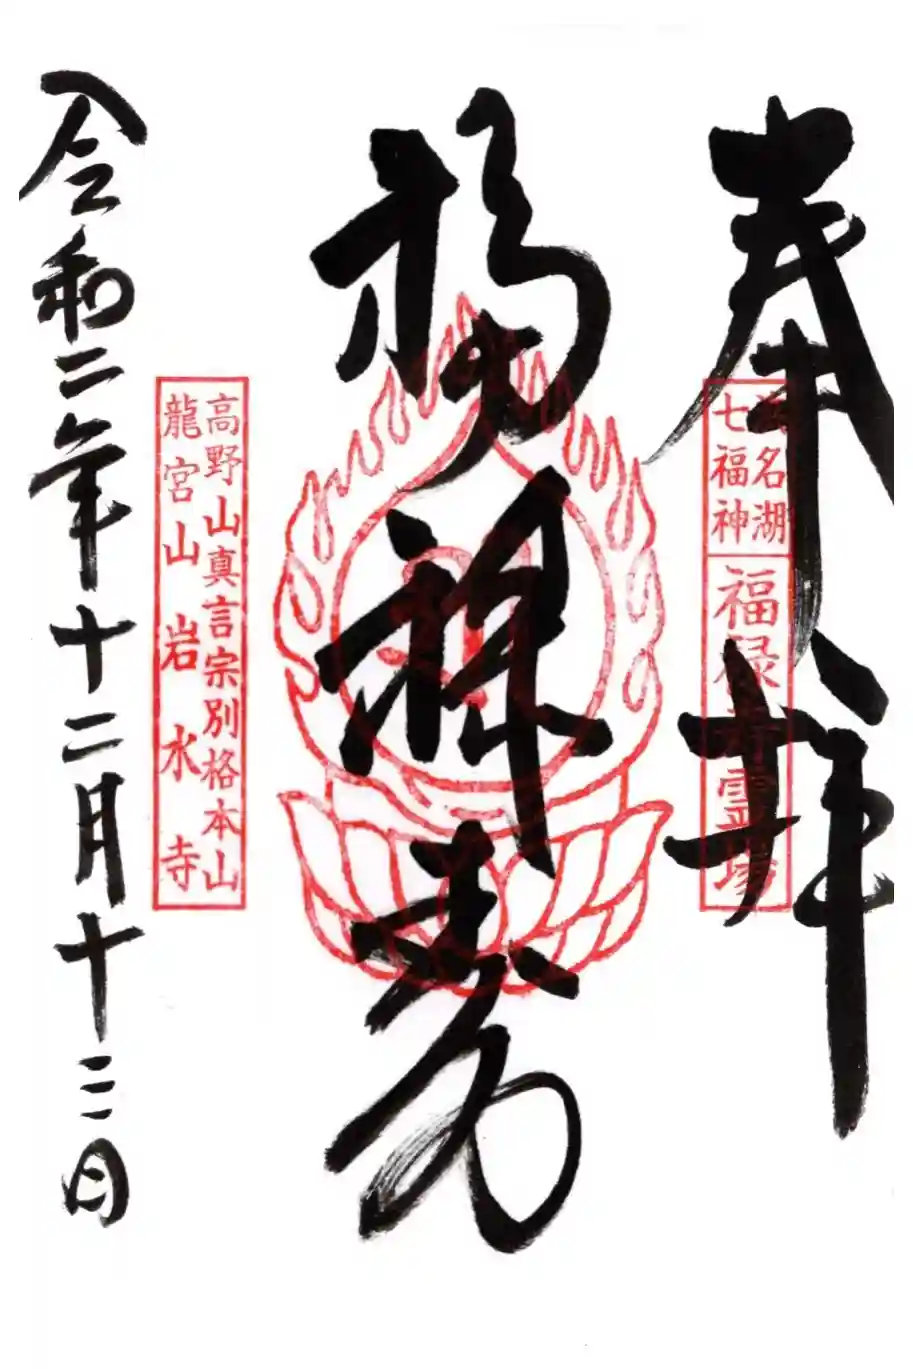 奉拝
浜名湖
七福神
福禄寿霊場
福禄寿
高野山真言宗別格本山
龍宮山 岩水寺
令和二年十二月十三日